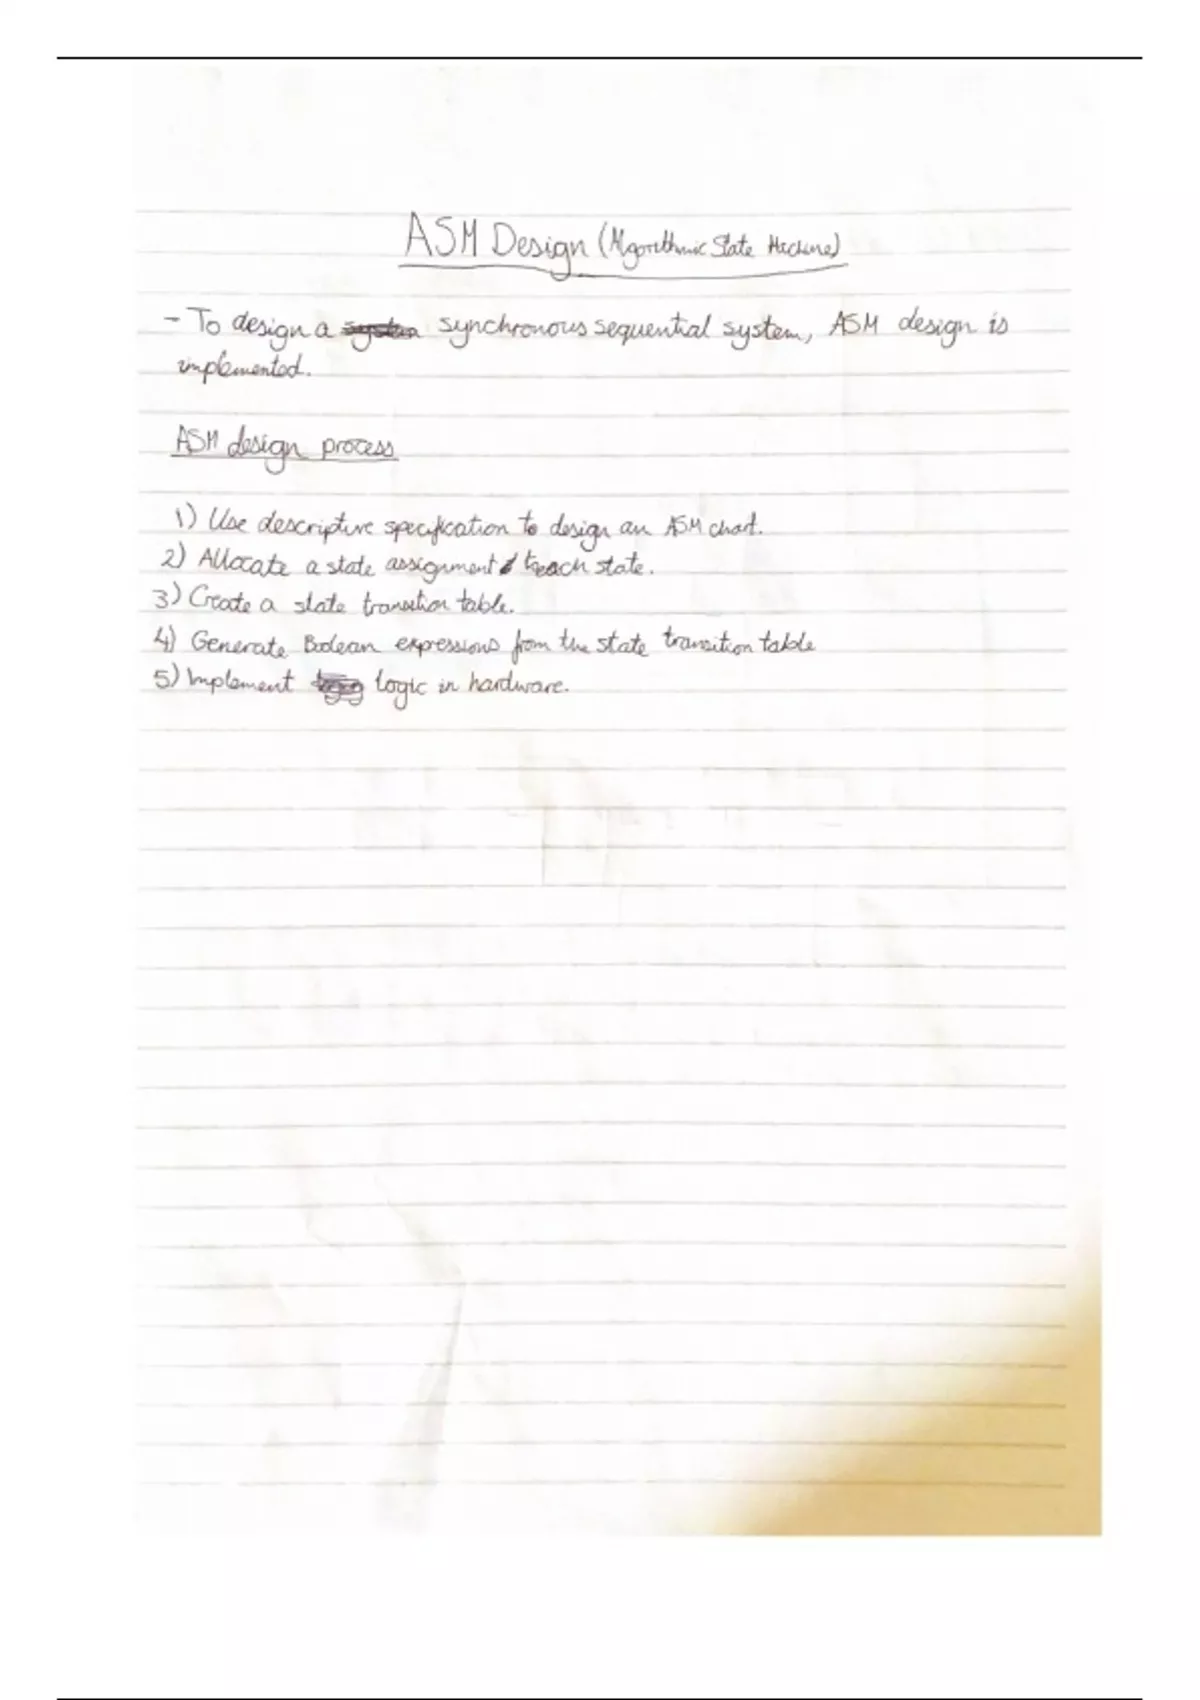 ASM Design (Algorithmic State Machine)
- To design a synchronous sequential system, ASM design is
implemented.
ASM design process
1) Use descriptive specification to design an ASM chart.
2) Allocate a state assignment to each state.
3) Create a state transition table.
4) Generate Boolean expressions from the state transition table
5) Implement logic in hardware.